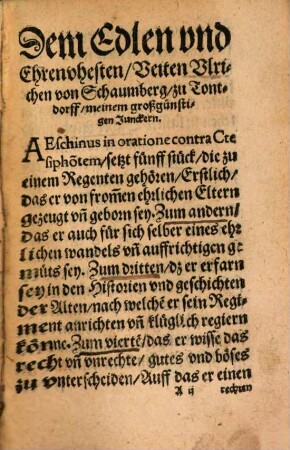 Dem Edlen vnd
Ehrenvhesten/Veiten Vlri-
chen von Schaumberg/zu Tont-
dorff/meinem großgünsti-
gen Junckern.
AEschinus in oratione contra Cte
siphõtem/setzt fünff stück/die zu
einem Regenten gehören/Erstlich/
das er von from̃en ehrlichen Eltern
gezeugt vñ geborn sey. Zum andern/
das er auch für sich selber eines ehr
lichen wandels vñ auffrichtigen ge
müts sey. Zum dritten/dz er erfarn
sey in den Historien vnd geschichten
der Alten/nach welchẽ er sein Regi-
ment anrichten vñ klüglich regiern
könne. Zum viertẽ/das er wisse das
recht vñ vnrechte/gutes vnd böses
zu vnterscheiden/Auff das er einen
A ij rechten